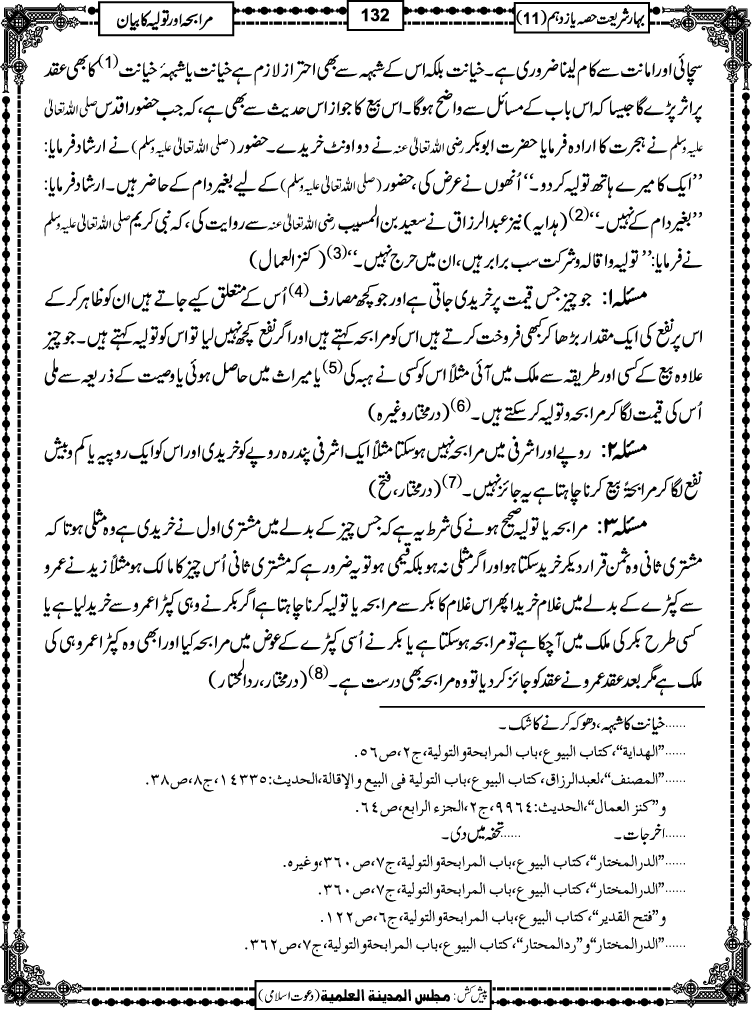 بہارِشریعت حصہ یازدہم (11)
132
مرابحہ اور تولیہ کا بیان
سچائی اور امانت سے کام لینا ضروری ہے۔ خیانت بلکہ اس کے شبہہ سے بھی احتراز لازم ہے خیانت یا شبہۂ خیانت (1) کا بھی عقد
پر اثر پڑے گا جیسا کہ اس باب کے مسائل سے واضح ہوگا۔ اس بیع کا جواز اس حدیث سے بھی ہے، کہ جب حضور اقدس صلی اللہ تعالیٰ
علیہ وسلم نے ہجرت کا ارادہ فرمایا حضرت ابوبکر رضی اللہ تعالیٰ عنہ نے دو اونٹ خریدے۔ حضور (صلی اللہ تعالیٰ علیہ وسلم) نے ارشاد فرمایا:
’’ایک کا میرے ہاتھ تولیہ کردو۔‘‘ اُنھوں نے عرض کی، حضور (صلی اللہ تعالیٰ علیہ وسلم) کے لیے بغیر دام کے حاضر ہیں۔ ارشاد فرمایا:
’’بغیر دام کے نہیں۔‘‘ (2) (ہدایہ) نیز عبدالرزاق نے سعید بن المسیب رضی اللہ تعالیٰ عنہ سے روایت کی، کہ نبی کریم صلی اللہ تعالیٰ علیہ وسلم
نے فرمایا: ’’ تولیہ و اقالہ و شرکت سب برابر ہیں، ان میں حرج نہیں۔‘‘ (3) (کنز العمال)
مسئلہ ۱: جو چیز جس قیمت پر خریدی جاتی ہے اور جو کچھ مصارف (4) اُس کے متعلق کیے جاتے ہیں ان کو ظاہر کر کے
اس پر نفع کی ایک مقدار بڑھا کر کبھی فروخت کرتے ہیں اس کو مرابحہ کہتے ہیں اور اگر نفع کچھ نہیں لیا تو اس کو تولیہ کہتے ہیں۔ جو چیز
علاوہ بیع کے کسی اور طریقہ سے ملک میں آئی مثلاً اس کو کسی نے ہبہ کی (5) یا میراث میں حاصل ہوئی یا وصیت کے ذریعہ سے ملی
اُس کی قیمت لگا کر مرابحہ و تولیہ کر سکتے ہیں۔ (6) (درمختار وغیرہ)
مسئلہ ۲: روپے اور اشرفی میں مرابحہ نہیں ہوسکتا مثلاً ایک اشرفی پندرہ روپے کو خریدی اور اس کو ایک روپیہ یا کم و بیش
نفع لگا کر مرابحۃً بیع کرنا چاہتا ہے یہ جائز نہیں۔ (7) (درمختار، فتح)
مسئلہ ۳: مرابحہ یا تولیہ صحیح ہونے کی شرط یہ ہے کہ جس چیز کے بدلے میں مشتری اول نے خریدی ہے وہ مثلی ہو تا کہ
مشتری ثانی وہ ثمن قرار دیکر خرید سکتا ہو اور اگر مثلی نہ ہو بلکہ قیمی ہو تو یہ ضرور ہے کہ مشتری ثانی اُس چیز کا مالک ہو مثلاً زید نے عمرو
سے کپڑے کے بدلے میں غلام خریدا پھر اس غلام کا بکر سے مرابحہ یا تولیہ کرنا چاہتا ہے اگر بکر نے وہی کپڑا عمرو سے خرید لیا ہے یا
کسی طرح بکر کی ملک میں آچکا ہے تو مرابحہ ہوسکتا ہے یا بکر نے اُسی کپڑے کے عوض میں مرابحہ کیا اور ابھی وہ کپڑا عمرو ہی کی
ملک ہے مگر بعد عقد عمرو نے عقد کو جائز کر دیا تو وہ مرابحہ بھی درست ہے۔ (8) (درمختار، ردالمحتار)
......خیانت کا شبہہ، دھوکہ کرنے کا شک۔
......”الهداية“، كتاب البيوع، باب المرابحة والتولية، ج٢، ص٥٦.
......”المصنف“، لعبدالرزاق، كتاب البيوع، باب التولية فى البيع والإقالة، الحديث: ١٤٣٣٥، ج٨، ص٣٨.
و”كنز العمال“، الحديث: ٩٩٦٤، ج٢، الجزء الرابع، ص٦٤.
......اخرجات۔ ......تحفہ میں دی۔
......”الدرالمختار“، كتاب البيوع، باب المرابحة والتولية، ج٧، ص٣٦٠، وغيره.
......”الدرالمختار“، كتاب البيوع، باب المرابحة والتولية، ج٧، ص٣٦٠.
و”فتح القدير“، كتاب البيوع، باب المرابحة والتولية، ج٦، ص١٢٢.
......”الدرالمختار“ و”ردالمحتار“، كتاب البيوع، باب المرابحة والتولية، ج٧، ص٣٦٢.
پیش کش: مجلس المدینۃ العلمیۃ (دعوت اسلامی)